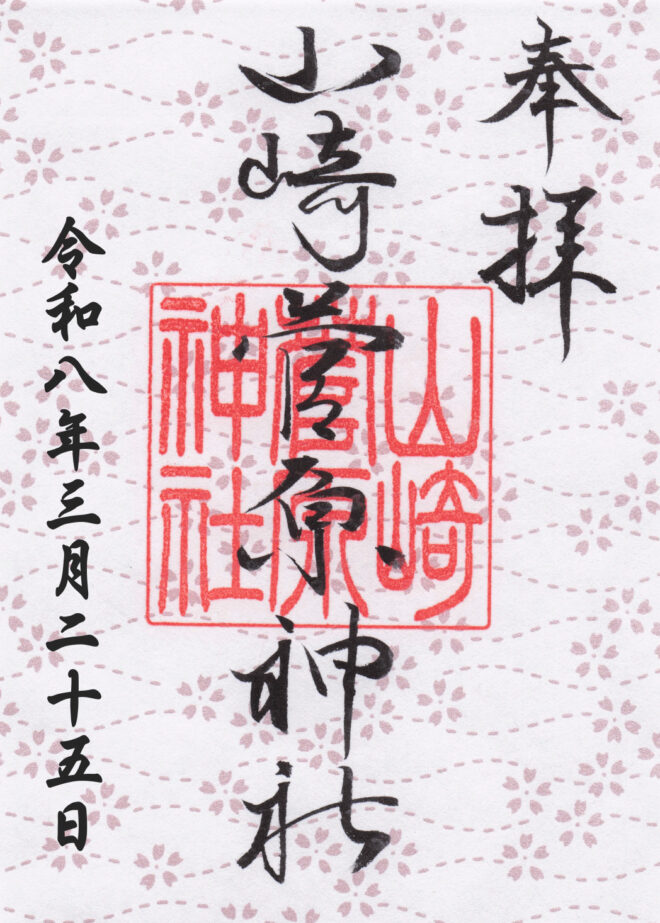 奉拝
山崎菅原神社
山崎
菅原
神社
令和八年三月二十五日